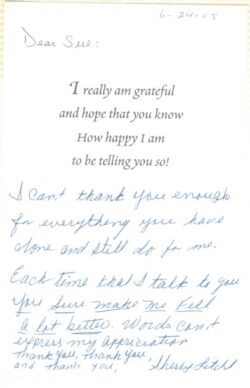 6-24-05
Dear Sue:
I really am grateful
and hope that you know
How happy I am
to be telling you so!
I can't thank you enough
for everything you have
done and still do for me.
Each time that I talk to you
you sure make me fell
a lot better. Words can't
express my appreciation
thank you, thank you,
and thank you,
Sherry